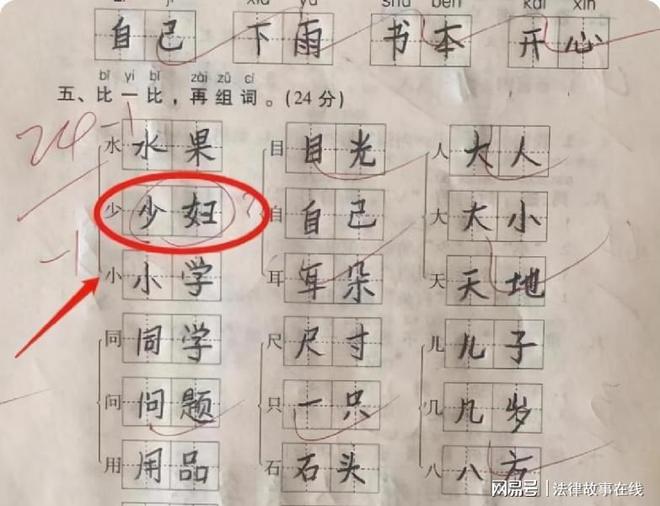 shū běn kāi xīn
自己 下雨 书本 开心
bǐ yi bǐ zài zǔ cí
五、比一比，再组词。(24分)
24-1
水 水果 目 目光 人 大人
少 少妇 自 自己 大 大小
-1
小 小学 耳 耳朵 天 天地
同 同学 尺 尺寸 儿 儿子
问 问题 只 一只 几 几岁
用 用品 石 石头 八 八方
网易号 | 法律故事在线